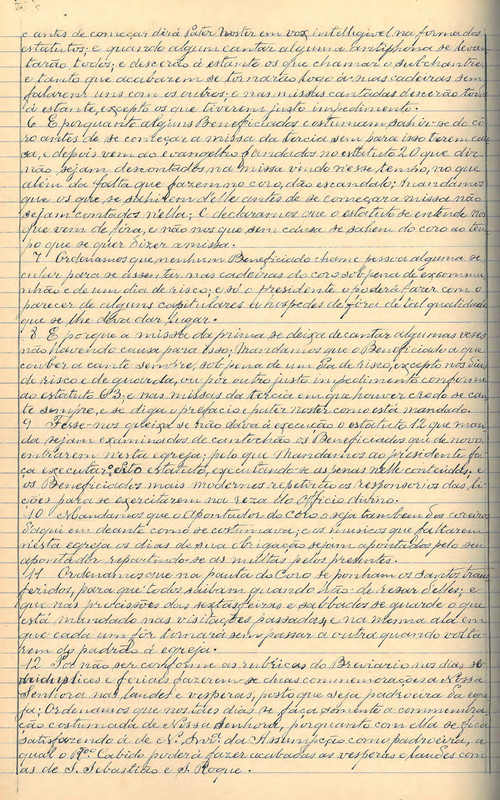 e antes de começar dirá Pater Noster em voz intelligivel na forma dos
estatutos; e quando algum cantar alguma antiphona se levan
tarão todos; e descerão á estante os que chamar o subchantre,
e tanto que acabarem se tornarão logo ás suas cadeiras sem
falarem uns com os outros; e nas missas cantadas descerão todos
á estante, excepto os que tiverem justo impedimento.
6 E porquanto alguns Beneficiados costumam sahir-se do cô
ro antes de se começar a missa da tercia sem para isso terem cau
sa, e depois vem ao evangelho fundados no estatuto 20 que diz
não sejam descontados na missa vindo nesse tempo, no que
além da falta que fazem no coro, dão escandalo; Mandamos
que os que se sahirem d'elle antes de se começar a missa não
sejam contados n'ella; E declaramos que o estatuto se entende nos
que vem de fóra, e não nos que sem causa se sahem do coro ao tem
po que se quer dizer a missa.
7 Ordenamos que nenhum Beneficiado chame pessoa alguma se
cular para se assentar nas cadeiras do coro sob pena de excommu
nhão e de um dia de risco; e só o presidente o poderá fazer com o
parecer de alguns capitulares a hospedes de fóra de tal qualidade
que se lhe deva dar lugar.
8 E porque a missa da prima se deixa de cantar algumas vezes
não havendo causa para isso; Mandamos que o Beneficiado a que
couber a cante sempre, sob pena de um dia de risco, excepto nos dias
de risco e de guarda, ou por outro justo impedimento conforme
ao estatuto 63; e nas missas da tercia em que houver credo se can
te sempre, e se diga o prefacio e pater noster como está mandado.
9 Fez-se-nos queixa se não dava á execução o estatuto 12 que man
da sejam examinados de cantochão os Beneficiados que de novo
entrarem nesta egreja; pelo que Mandamos ao presidente fa
ça executar o dito estatuto, executando-se as penas nelle conteúdas, e
os Beneficiados mais modernos repetirão os responsorios das li
ções para se exercitarem na reza do Officio divino.
10 Mandamos que o Apontador do Coro o seja tambem dos coreiros
d'aqui em deante como se costumava; e os musicos que faltarem
nesta egreja os dias de sua obrigação sejam apontados pelo seu
apontador repartindo-se as multas pelos presentes.
11 Ordenamos que na pauta do Coro se ponham os santos trans
feridos, para que todos saibam quando hão de resar delles; e
que nas procissões das sextas-feiras e sabbados se guarde o que
está mandado nas visitações passadas, e na mesma ala em
que cada um fôr tornará sem passar a outra quando volta
rem do padrão á egreja.
12 Por não ser conforme as rubricas do Breviario nos dias se
midupplices e feriaes fazerem-se duas commemorações a Nossa
Senhora nas laudes e vesperas, posto que seja padroeira da egre
ja; Ordenamos que nos taes dias se faça sómente a commemora
ção costumada de Nossa Senhora, porquanto com ella se fica
satisfazendo á de N.ª Snr.ª da Assumpção como padroeira, a
qual o R.do Cabido poderá fazer acabadas as vesperas e laudes com
as de S. Sebastião e S. Roque.